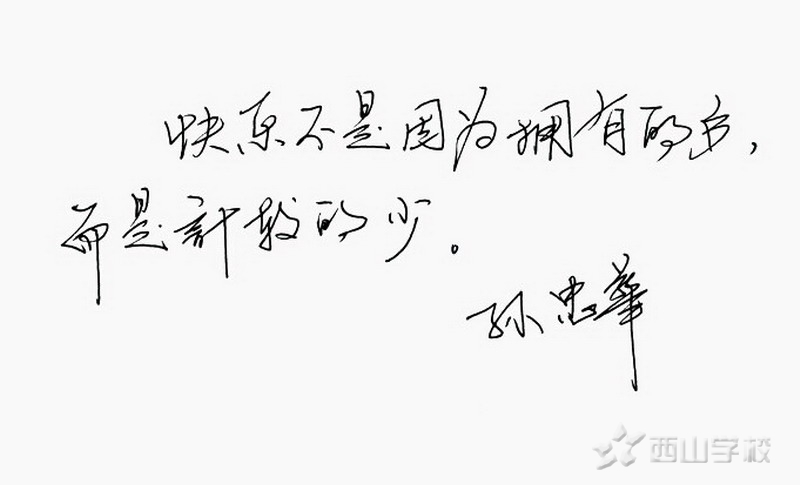 快乐不是因为拥有的多，
而是計较的少。
孙忠华
西山学校